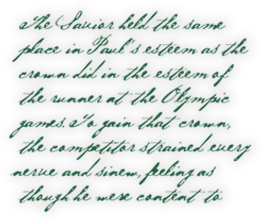 The Savior held the same
place in Paul's esteem as the
crown did in the esteem of
the runner at the Olympic
games. To gain that crown,
the competitor strained every
nerve and sinew, feeling as
though he were content to